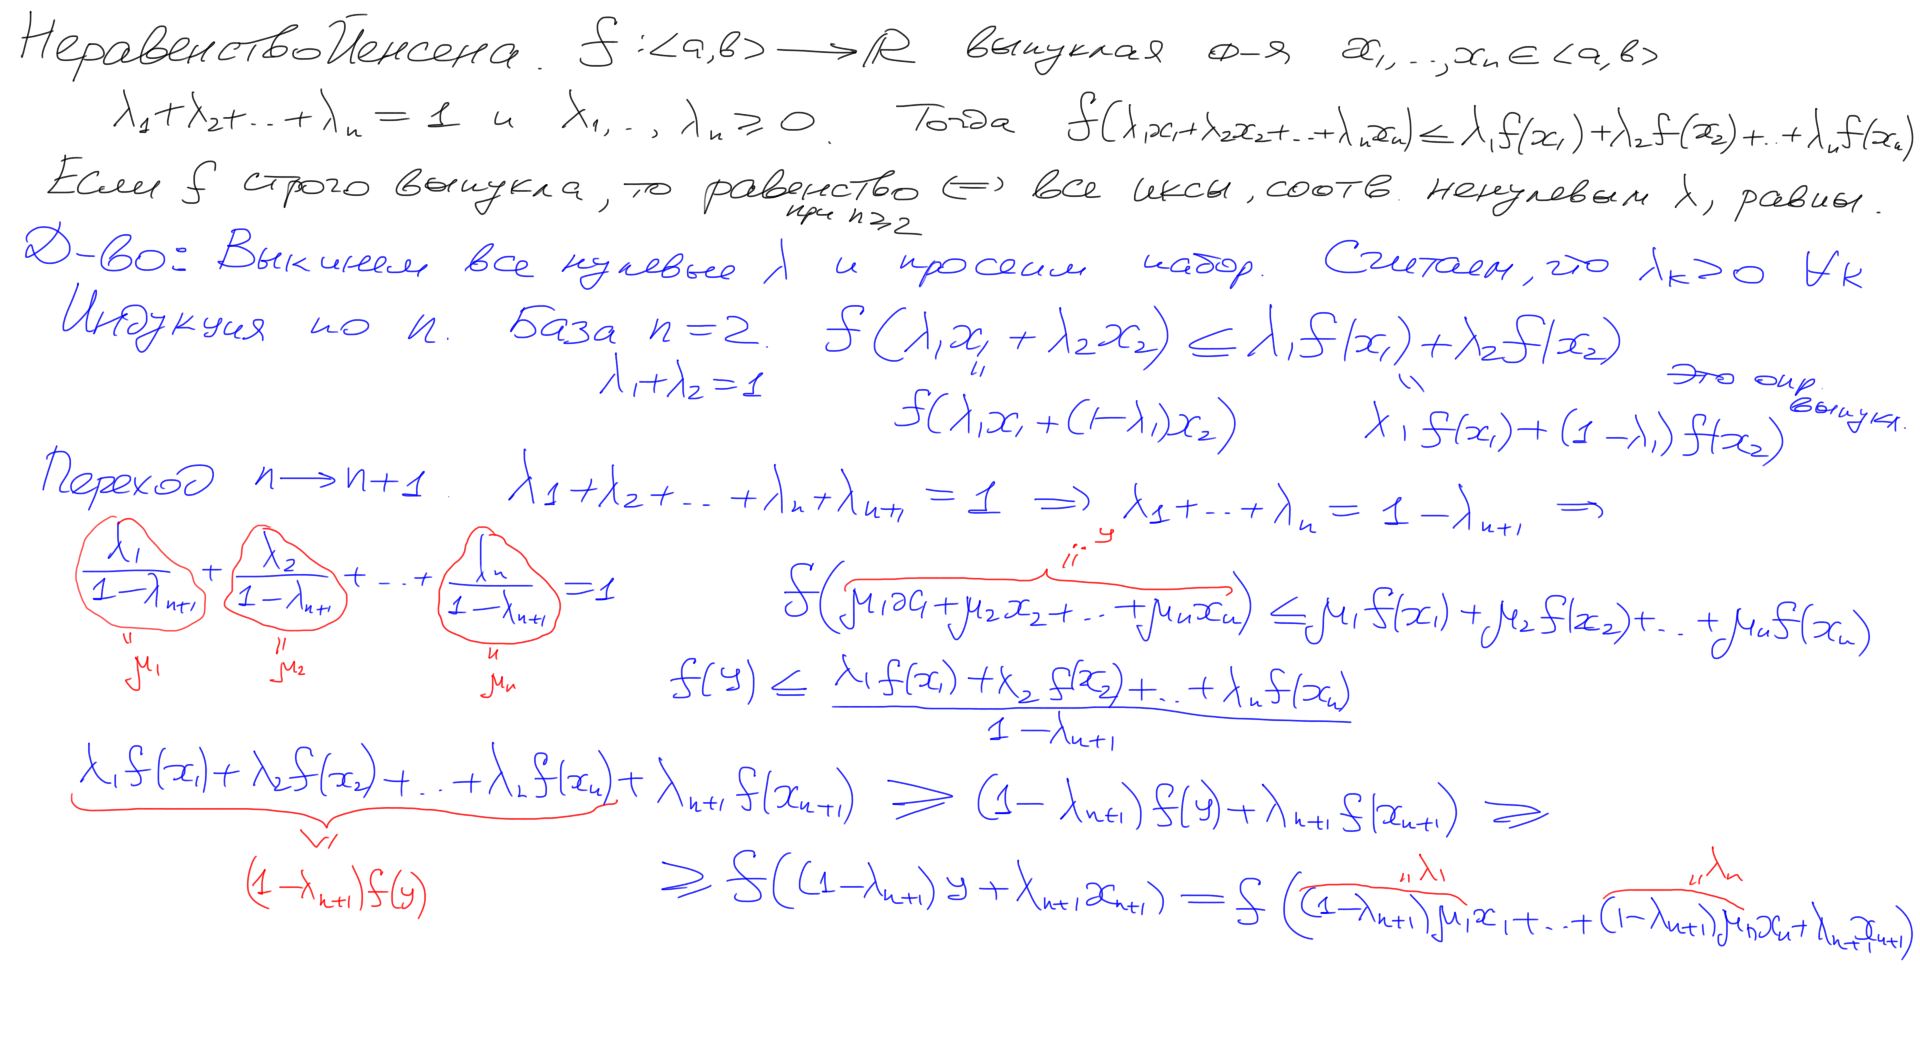 Неравенство Йенсена. f : <a,b> → R выпуклая ф-я x₁,..,xₙ ∈ <a,b>
λ₁+λ₂+..+λₙ = 1 и λ₁,..,λₙ ≥ 0. Тогда f(λ₁x₁+λ₂x₂+..+λₙxₙ) ≤ λ₁f(x₁)+λ₂f(x₂)+..+λₙf(xₙ)
Если f строго выпукла, то равенство ⟺ все иксы, соотв. ненулевым λ, равны.
при n≥2
Д-во: Выкинем все нулевые λ и просеим набор. Считаем, что λₖ>0 ∀k
Индукция по n. База n=2. f(λ₁x₁ + λ₂x₂) ≤ λ₁f(x₁)+λ₂f(x₂)
λ₁+λ₂=1 " " Это опр. выпукл.
f(λ₁x₁+(1−λ₁)x₂) λ₁f(x₁)+(1−λ₁)f(x₂)
Переход n→n+1. λ₁+λ₂+..+λₙ+λₙ₊₁ = 1 ⇒ λ₁+..+λₙ = 1−λₙ₊₁ ⇒
λ₁/(1−λₙ₊₁) + λ₂/(1−λₙ₊₁) + ..+ λₙ/(1−λₙ₊₁) = 1
" μ₁ " μ₂ " μₙ
" y
f(μ₁x₁+μ₂x₂+..+μₙxₙ) ≤ μ₁f(x₁)+μ₂f(x₂)+..+μₙf(xₙ)
f(y) ≤ (λ₁f(x₁)+λ₂f(x₂)+..+λₙf(xₙ))/(1−λₙ₊₁)
λ₁f(x₁)+λ₂f(x₂)+..+λₙf(xₙ)+λₙ₊₁f(xₙ₊₁) ≥ (1−λₙ₊₁)f(y)+λₙ₊₁f(xₙ₊₁) ≥
(1−λₙ₊₁)f(y)
" λ₁ " λₙ
≥ f((1−λₙ₊₁)y+λₙ₊₁xₙ₊₁) = f((1−λₙ₊₁)μ₁x₁+..+(1−λₙ₊₁)μₙxₙ+λₙ₊₁xₙ₊₁)